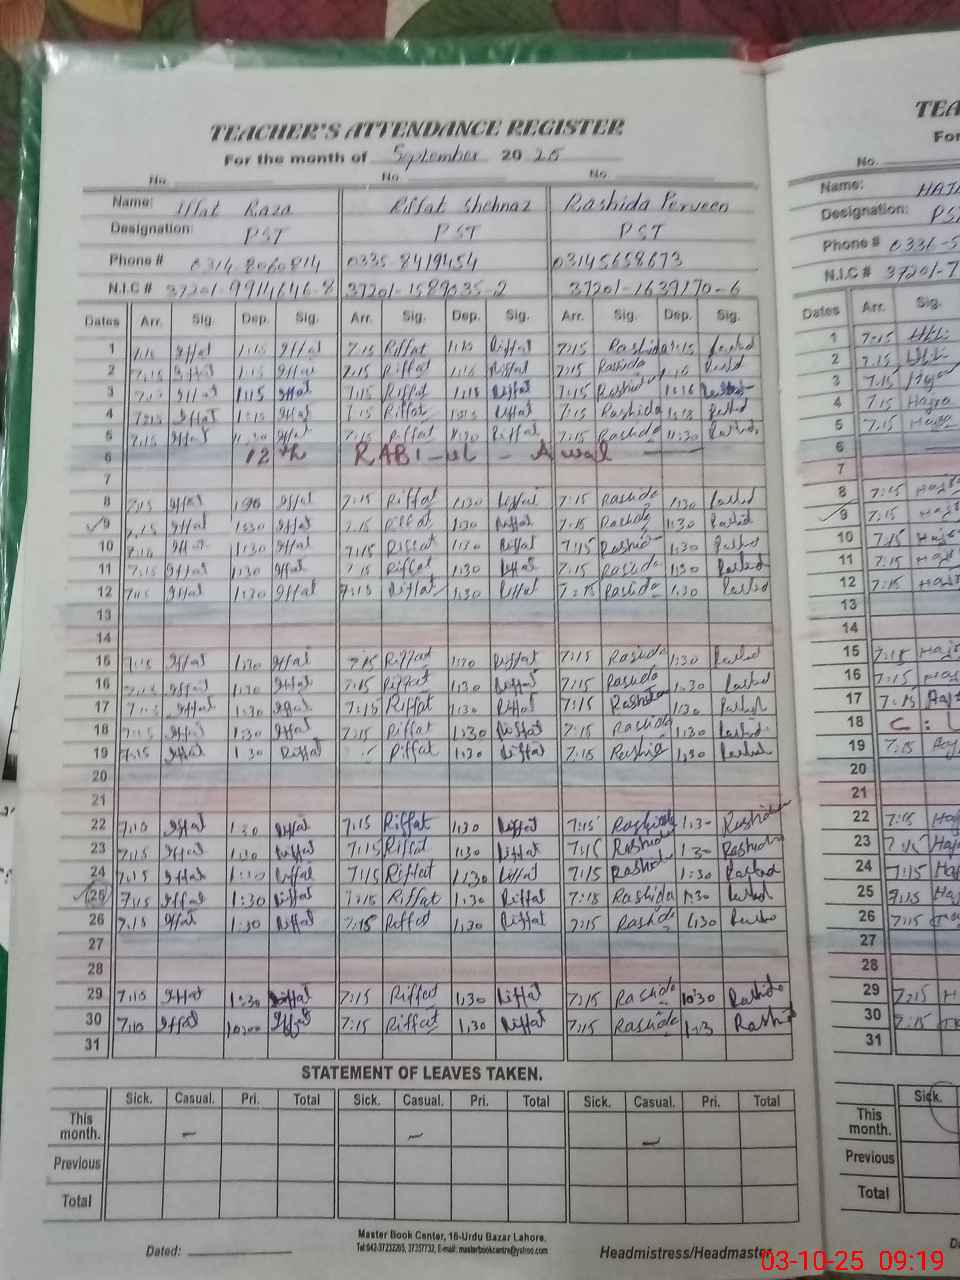 TEACHER'S ATTENDANCE REGISTER
For the month of September 2025
No. No. No.
Name: Iffat Raza Riffat Shehnaz Rashida Perveen
Designation: PST PST PST
Phone # 0314-8060814 0335-8419454 03145658673
N.I.C # 37201-9914646-8 37201-1589035-2 37201-1639170-6
Dates Arr. Sig. Dep. Sig. Arr. Sig. Dep. Sig. Arr. Sig. Dep. Sig.
1 7:15 Iffat 1:15 Iffat 7:15 Riffat 1:15 Riffat 7:15 Rashida 1:15
2 7:15 Iffat 1:15 Iffat 7:15 Riffat 1:15 Riffat 7:15 Rashida
3 7:15 Iffat 1:15 Iffat 7:15 Riffat 1:15 Riffat 7:15 Rashida
4 7:15 Iffat 1:15 Iffat 7:15 Riffat Riffat 7:15 Rashida
5 7:15 Iffat 11:30 Iffat 7:15 Riffat 11:30 Riffat 7:15 Rashida 11:30
6 12th RABI-ul-Awal
7
8 7:15 Iffat Iffat 7:15 Riffat 1:30 Riffat 7:15 Rashida 1:30
9 7:15 Iffat 1:30 Iffat 7:15 Riffat 1:30 Riffat 7:15 Rashida 1:30
10 Iffat 1:30 Iffat 7:15 Riffat 1:30 Riffat 7:15 Rashida 1:30
11 7:15 Iffat 1:30 Iffat 7:15 Riffat 1:30 Riffat 7:15 Rashida 1:30
12 7:15 Iffat 1:30 Iffat 7:15 Riffat 1:30 Riffat 7:15 Rashida 1:30
13
14
15 7:15 Iffat 1:30 Iffat 7:15 Riffat 1:30 Riffat 7:15 Rashida 1:30
16 7:15 Iffat 1:30 Iffat 7:15 Riffat 1:30 Riffat 7:15 Rashida 1:30
17 7:15 Iffat 1:30 Iffat 7:15 Riffat 1:30 Riffat 7:15 Rashida 1:30
18 7:15 Iffat 1:30 Iffat 7:15 Riffat 1:30 Riffat 7:15 Rashida 1:30
19 7:15 Iffat 1:30 Riffat Riffat 1:30 Riffat 7:15 Rashida 1:30
20
21
22 7:10 Iffat 1:30 Riffat 7:15 Riffat 1:30 Riffat 7:15 Rashida 1:30 Rashida
23 7:15 Iffat 1:30 Riffat 7:15 Riffat 1:30 Riffat 7:15 Rashida 1:30 Rashida
24 7:15 Iffat 1:30 7:15 Riffat 1:30 7:15 Rashida 1:30 Rashid
25 7:15 Iffat 1:30 Riffat 7:15 Riffat 1:30 Riffat 7:15 Rashida 1:30
26 7:15 Iffat 1:30 Riffat 7:15 Riffat 1:30 Riffat 7:15 Rashida 1:30
27
28
29 7:10 Iffat 1:30 Riffat 7:15 Riffat 1:30 Riffat 7:15 Rashida 10:30 Rashida
30 7:10 Iffat 10:00 Iffat 7:15 Riffat 1:30 Riffat 7:15 Rashida 1:3 Rashid
31
STATEMENT OF LEAVES TAKEN.
Sick. Casual. Pri. Total Sick. Casual. Pri. Total Sick. Casual. Pri. Total
This month. – – –
Previous
Total
Master Book Center, 16-Urdu Bazar Lahore.
Dated: Headmistress/Headmaster
TEA
For
No.
Name:
Designation: PS
Phone # 0336-5
N.I.C # 37201-7
Dates Arr. Sig
1 7:15
2 7:15
3 7:15
4 7:15 Hajra
5 7:15
6
7
8 7:15
9 7:15
10 7:15
11 7:15
12 7:15
13
14
15 7:15
16 7:15
17 7:15
18 C: L
19 7:15
20
21
22 7:15
23 7:15
24 7:15
25 7:15
26 7:15
27
28
29 7:15
30 7:15
31
Sick.
This month.
Previous
Total
03-10-25 09:19